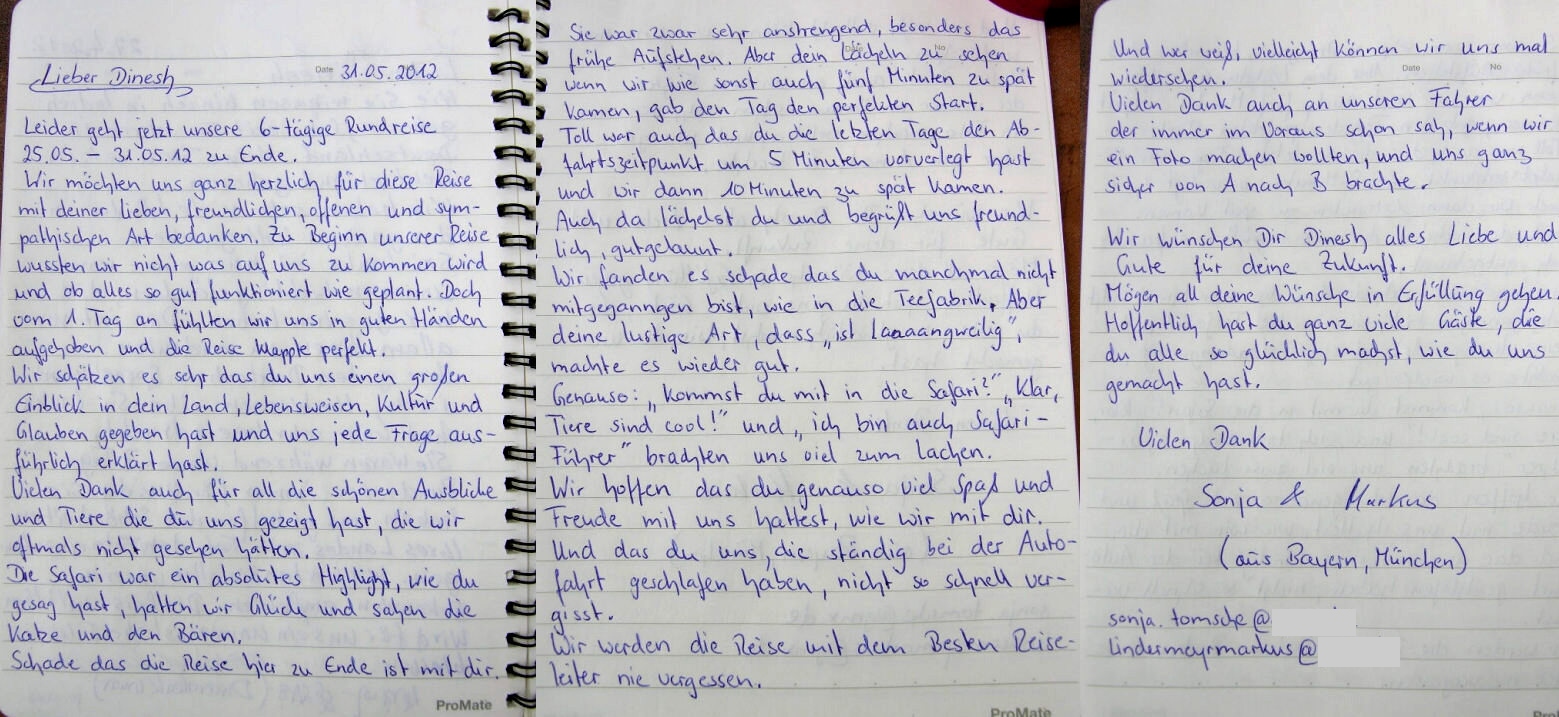 Date 31.05.2012
Lieber Dinesh
Leider geht jetzt unsere 6-tägige Rundreise
25.05. – 31.05.12 zu Ende.
Wir möchten uns ganz herzlich für diese Reise
mit deiner lieben, freundlichen, offenen und sym-
pathischen Art bedanken. Zu Beginn unserer Reise
wussten wir nicht was auf uns zu kommen wird
und ob alles so gut funktioniert wie geplant. Doch
vom 1. Tag an fühlten wir uns in guten Händen
aufgehoben und die Reise klappte perfekt.
Wir schätzen es sehr das du uns einen großen
Einblick in dein Land, Lebensweisen, Kultur und
Glauben gegeben hast und uns jede Frage aus-
führlich erklärt hast.
Vielen Dank auch für all die schönen Ausblicke
und Tiere die du uns gezeigt hast, die wir
oftmals nicht gesehen hätten.
Die Safari war ein absolutes Highlight, wie du
gesag hast, hatten wir Glück und sahen die
Katze und den Bären.
Schade das die Reise hier zu Ende ist mit dir.
ProMate
Sie war zwar sehr anstrengend, besonders das
frühe Aufstehen. Aber dein Lächeln zu sehen
Date No
wenn wir wie sonst auch fünf Minuten zu spät
kamen, gab den Tag den perfekten Start.
Toll war auch das du die letzten Tage den Ab-
fahrtszeitpunkt um 5 Minuten vorverlegt hast
und wir dann 10 Minuten zu spät kamen.
Auch da lächelst du und begrüßt uns freund-
lich, gutgelaunt.
Wir fanden es schade das du manchmal nicht
mitgeganngen bist, wie in die Teefabrik. Aber
deine lustige Art, dass „ist laaaangweilig",
machte es wieder gut.
Genauso: „Kommst du mit in die Safari?" „Klar,
Tiere sind cool!" und „ich bin auch Safari-
Führer" brachten uns viel zum Lachen.
Wir hoffen das du genauso viel Spaß und
Freude mit uns hattest, wie wir mit dir.
Und das du uns, die ständig bei der Auto-
fahrt geschlafen haben, nicht so schnell ver-
gisst.
Wir werden die Reise mit dem Besten Reise-
leiter nie vergessen.
ProMate
Und wer weiß, vielleicht können wir uns mal
wiedersehen.
Date No
Vielen Dank auch an unseren Fahrer
der immer im Voraus schon sah, wenn wir
ein Foto machen wollten, und uns ganz
sicher von A nach B brachte.
Wir wünschen Dir Dinesh alles Liebe und
Gute für deine Zukunft.
Mögen all deine Wünsche in Erfüllung gehen.
Hoffentlich hast du ganz viele Gäste, die
du alle so glücklich machst, wie du uns
gemacht hast.
Vielen Dank
Sonja & Markus
(aus Bayern, München)
sonja.tomsche@
lindermeyrmarkus@